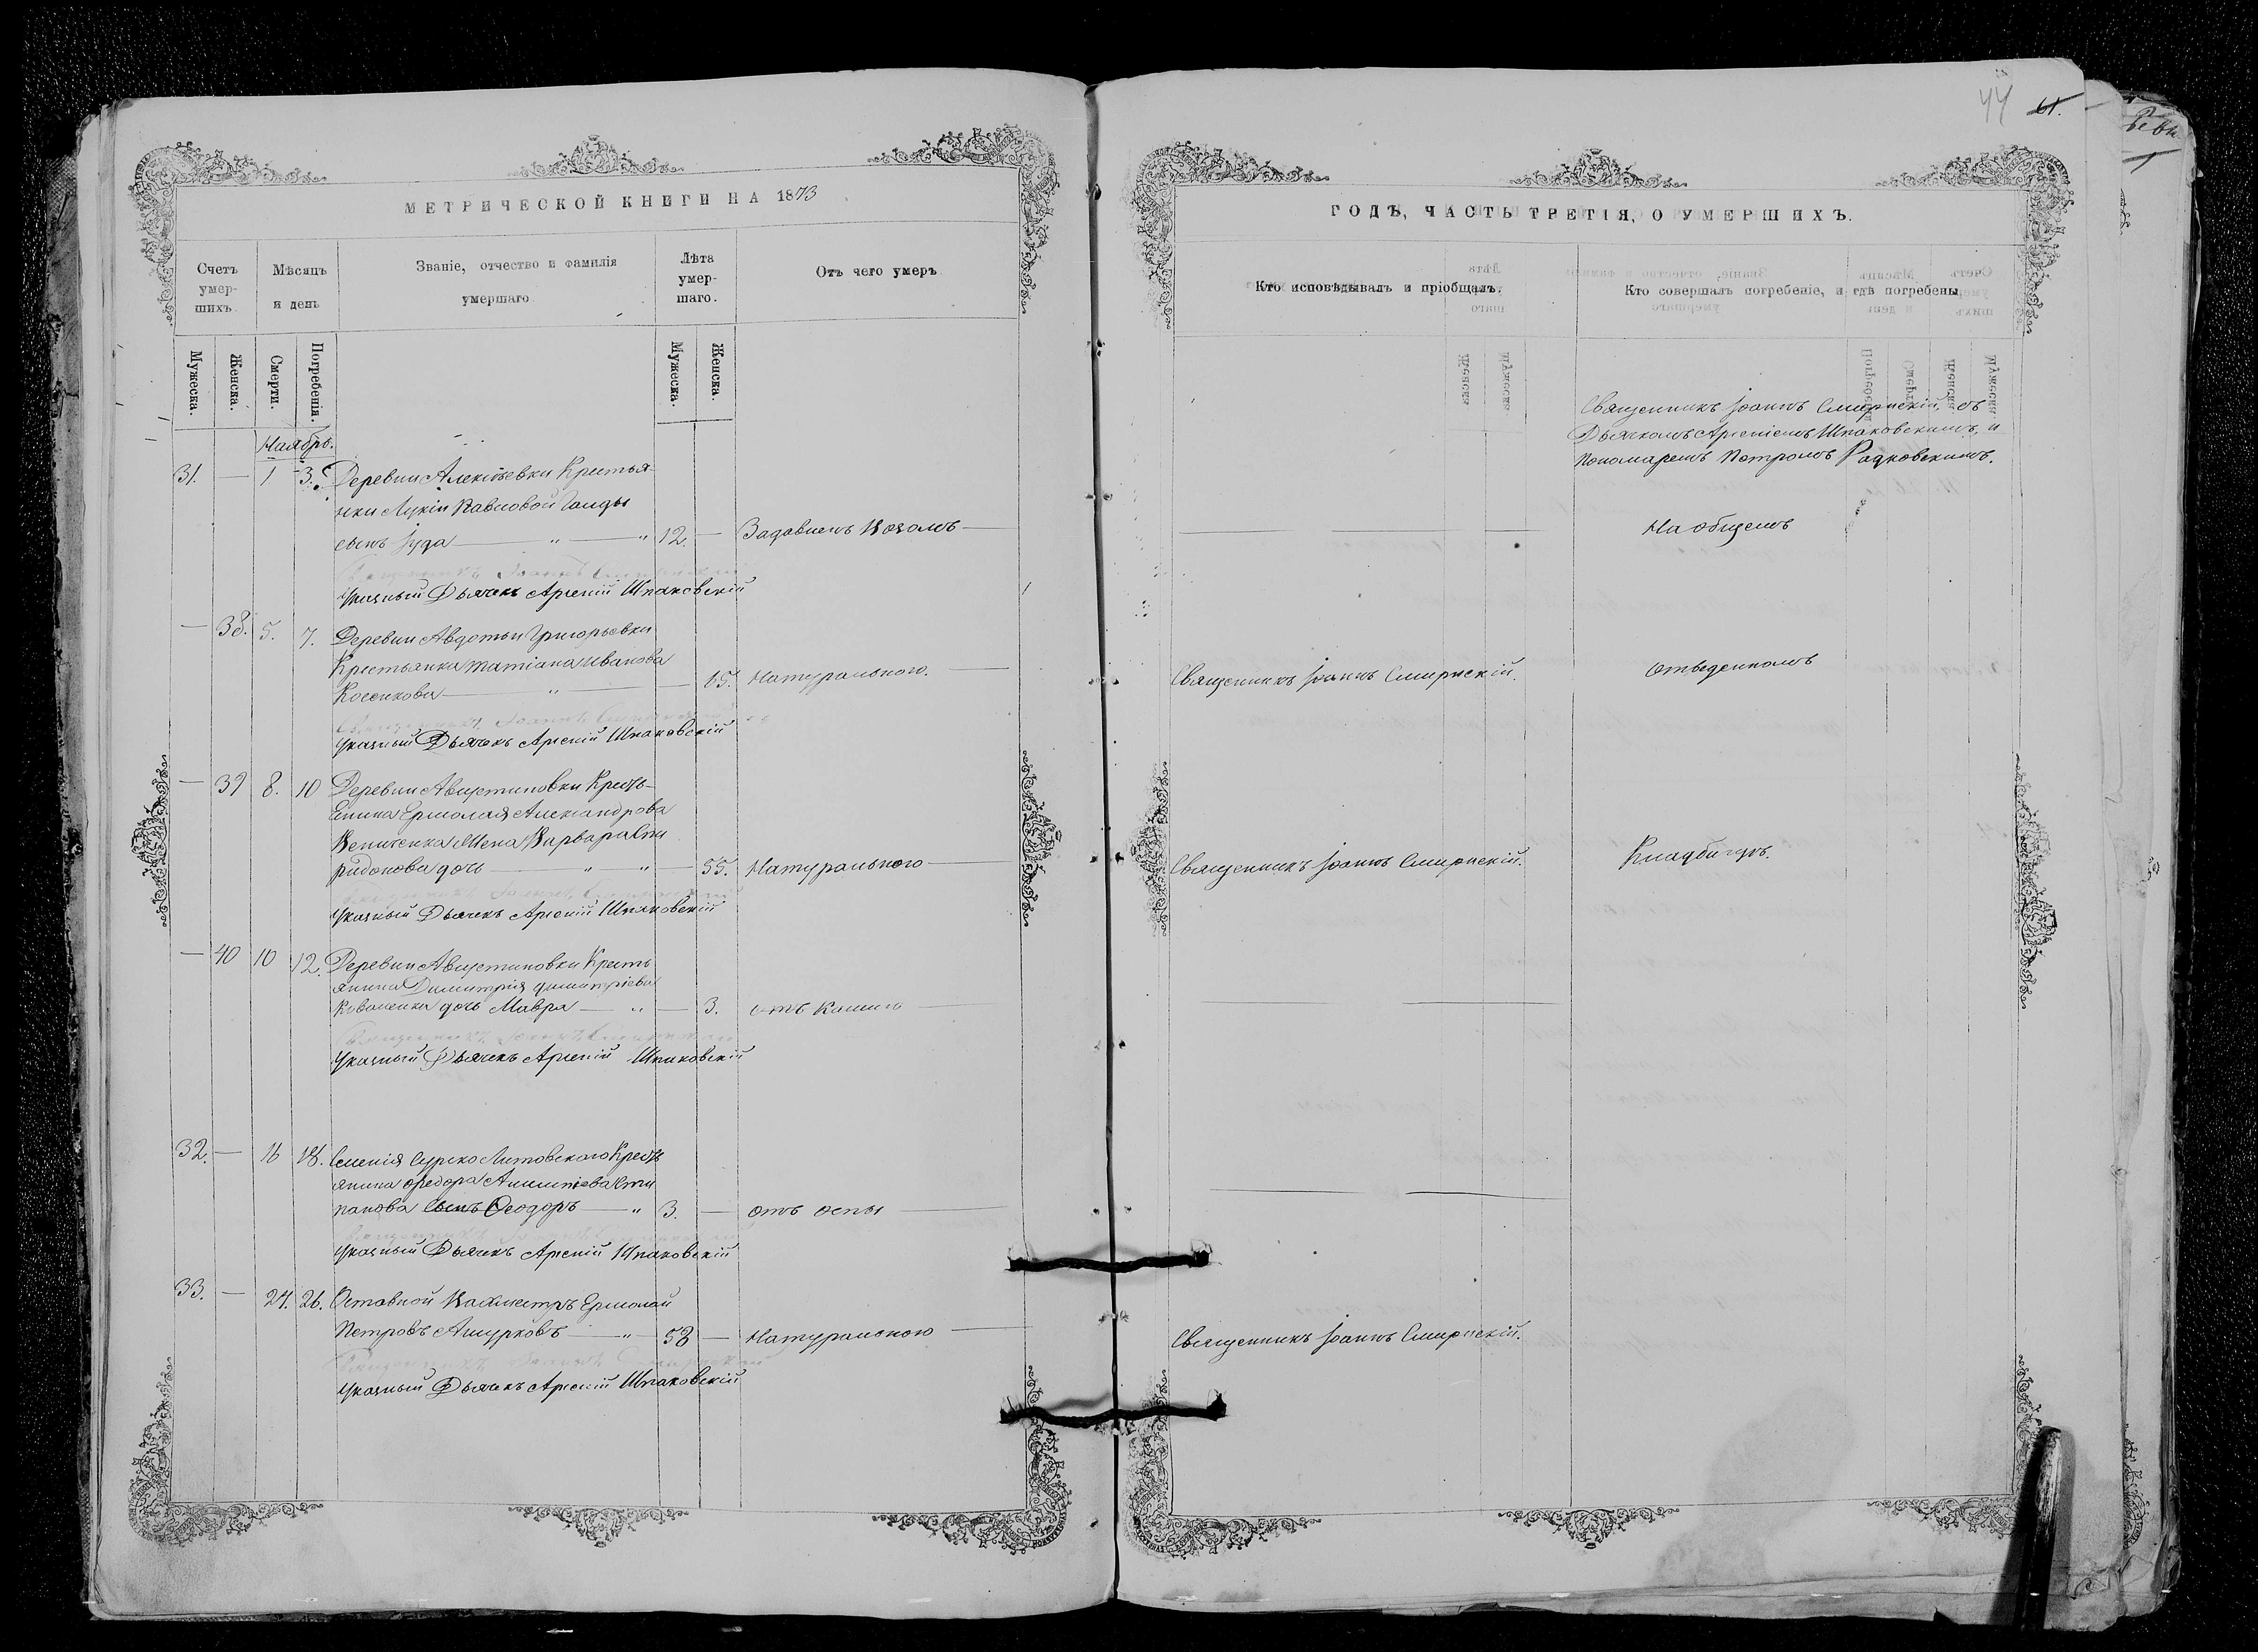 44 61.
МЕТРИЧЕСКОЙ КНИГИ НА 1873
Счетъ умер-шихъ
Мѣсяцъ и день
Званіе, отчество и фамилія умершаго
Лѣта умер-шаго.
Отъ чего умеръ
Мужеска.
Женска.
Смерти.
Погребенія.
Мужеска.
Женска.
Наябрь.
31. — 1 3. Деревни Алексѣевки Крестья
нки Лукіи Павловой
сынъ Іуда — " — " 12. — Задавленъ Возомъ —
Указный Дьячекъ Арсеній Шпаковскій
— 38. 5. 7. Деревни Авдотьи Григорьевки
Крестьянка Татіана Иванова
— " — 15. Натуральною. —
Указный Дьячекъ Арсеній Шпаковскій
— 39 8. 10 Деревни Августиновки Кресть-
Ермолая Александрова
Жена Варвара Спи
ридонова дочь — " — " — 55. Натуральною —
Указный Дьячекъ Арсеній Шпаковскій
— 40 10 12. Деревни Августиновки Кресть
янина Димитрія Димитріева
Коваленка дочь Мавра — " — 3. отъ Кашлю —
Указный Дьячекъ Арсеній Шпаковскій
32. — 16 18. Селенія Сурско Литовскаго Кресть
янина Федора Сти
панова Сынъ Ѳеодоръ — " 3. — отъ оспы —
Указный Дьячекъ Арсеній Шпаковскій
33. — 24. 26. Отставной Вахмистръ Ермолай
Петровъ Ашурковъ — " — 58 — Натуральною —
Указный Дьячекъ Арсеній Шпаковскій
ГОДЪ, ЧАСТЬ ТРЕТІЯ, О УМЕРШИХЪ.
Кто исповѣдывалъ и пріобщалъ.
Кто совершалъ погребеніе, и гдѣ погребены
Священникъ Іоаннъ Смирнскій, съ
Дьячкомъ Арсеніемъ Шпаковскимъ, и
Пономаремъ Петромъ Радковскимъ.
На общемъ
Священникъ Іоаннъ Смирнскій.
отведенномъ
Священникъ Іоаннъ Смирнскій.
Кладбищѣ.
Священникъ Іоаннъ Смирнскій.